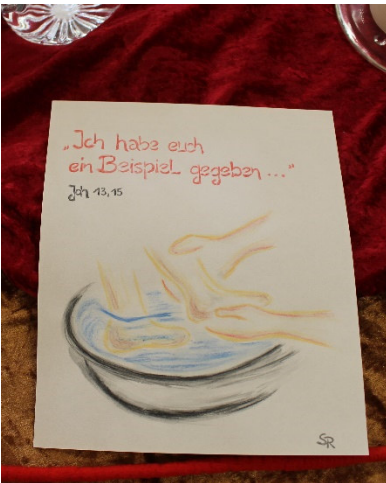 „Ich habe euch
ein Beispiel gegeben ..."
Joh 13,15
SR